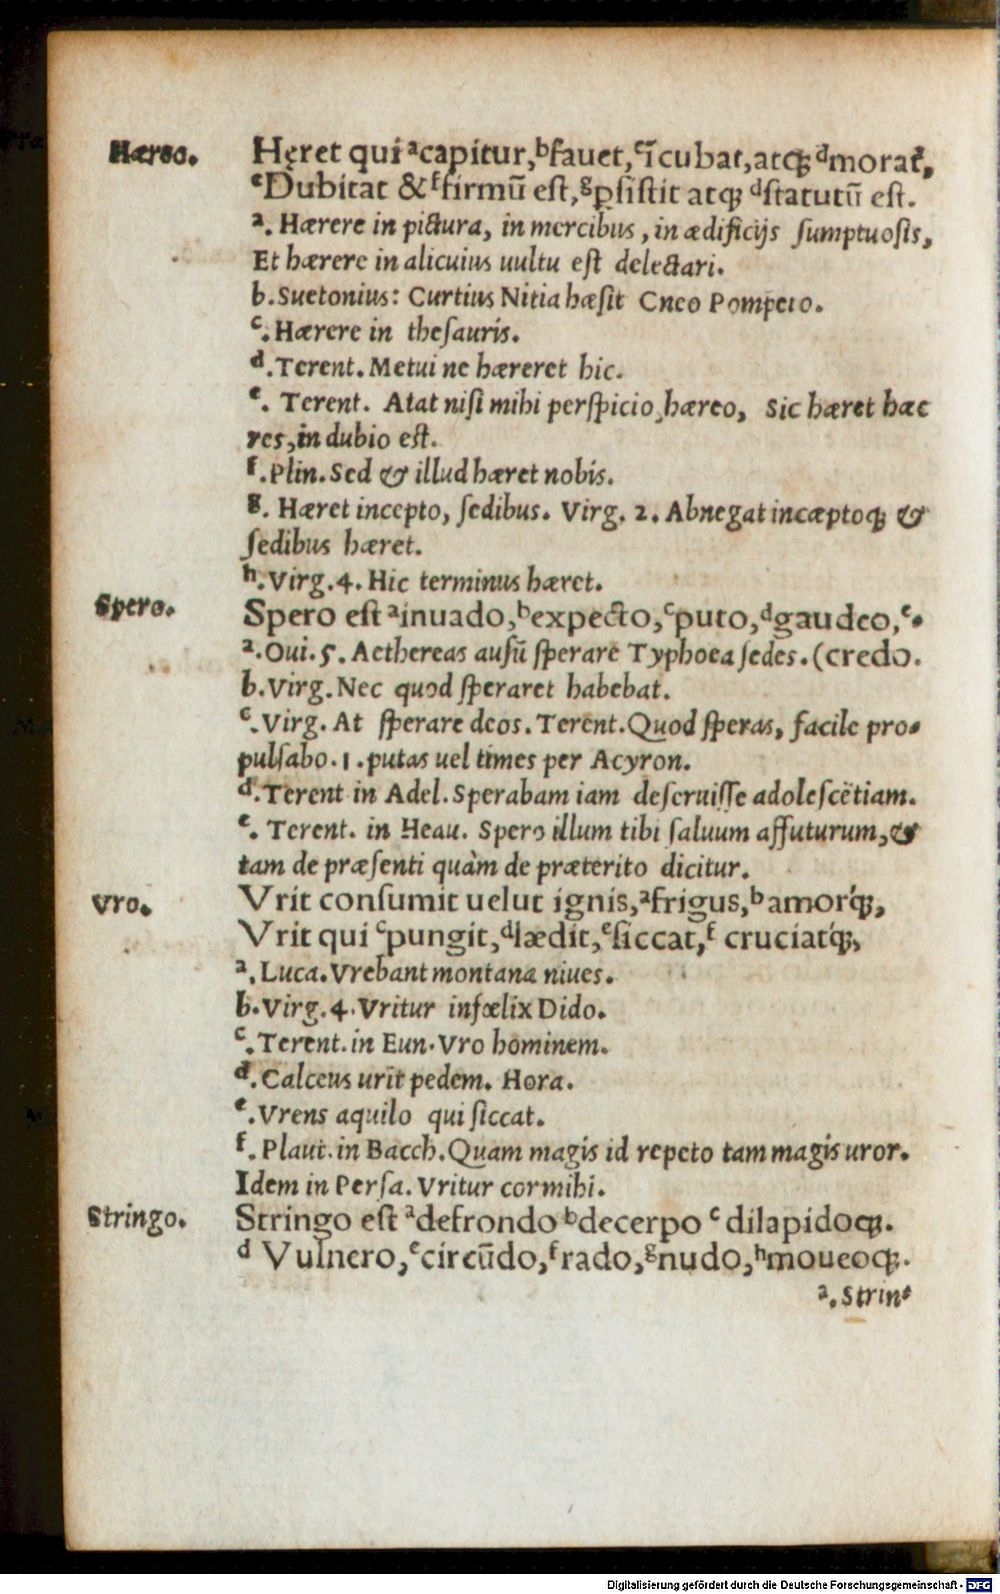 Hæreo.
Hęret qui ᵃcapitur, ᵇfauet, ᶜĩcubat, atqꝫ ᵈmorat᷑,
ᵉDubitat & ᶠfirmũ est, ᵍꝑsistit atqꝫ ᵈstatutũ est.
a. Hærere in pictura, in mercibus, in ædificijs sumptuosis,
Et hærere in alicuius uultu est delectari.
b. Suetonius: Curtius Nitia hæsit Cneo Pompeio.
c. Hærere in thesauris.
d. Terent. Metui ne hæreret hic.
e. Terent. Atat nisi mihi perspicio, hæreo, Sic hæret hæc
res, in dubio est.
f. Plin. Sed & illud hæret nobis.
g. Hæret incepto, sedibus. Virg. 2. Abnegat incæptoqꝫ &
sedibus hæret.
h. Virg. 4. Hic terminus hæret.
Spero.
Spero est ᵃinuado, ᵇexpecto, ᶜputo, ᵈgaudeo, ᵉ.
a. Oui. 5. Aethereas ausũ sperare Typhoea sedes. (credo.
b. Virg. Nec quod speraret habebat.
c. Virg. At sperare deos. Terent. Quod speras, facile pro-
pulsabo. 1. putas uel times per Acyron.
d. Terent in Adel. Sperabam iam deseruisse adolescẽtiam.
e. Terent. in Heau. Spero illum tibi saluum affuturum, &
tam de præsenti quàm de præterito dicitur.
Vro.
Vrit consumit uelut ignis, ᵃfrigus, ᵇamorq́ꝫ,
Vrit qui ᶜpungit, ᵈlædit, ᵉsiccat, ᶠ cruciatq́ꝫ,
a. Luca. Vrebant montana niues.
b. Virg. 4. Vritur infœlix Dido.
c. Terent. in Eun. Vro hominem.
d. Calceus urit pedem. Hora.
e. Vrens aquilo qui siccat.
f. Plaut. in Bacch. Quam magis id repeto tam magis uror.
Idem in Persa. Vritur cor mihi.
Stringo.
Stringo est ᵃdefrondo ᵇdecerpo ᶜ dilapidoqꝫ.
ᵈ Vulnero, ᵉcircũdo, ᶠrado, ᵍnudo, ʰmoueoqꝫ.
a. Strin-
Digitalisierung gefördert durch die Deutsche Forschungsgemeinschaft - DFG